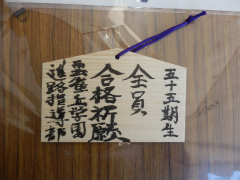 五十五期生
全員
合格祈願
雲雀丘学園
進路指導部